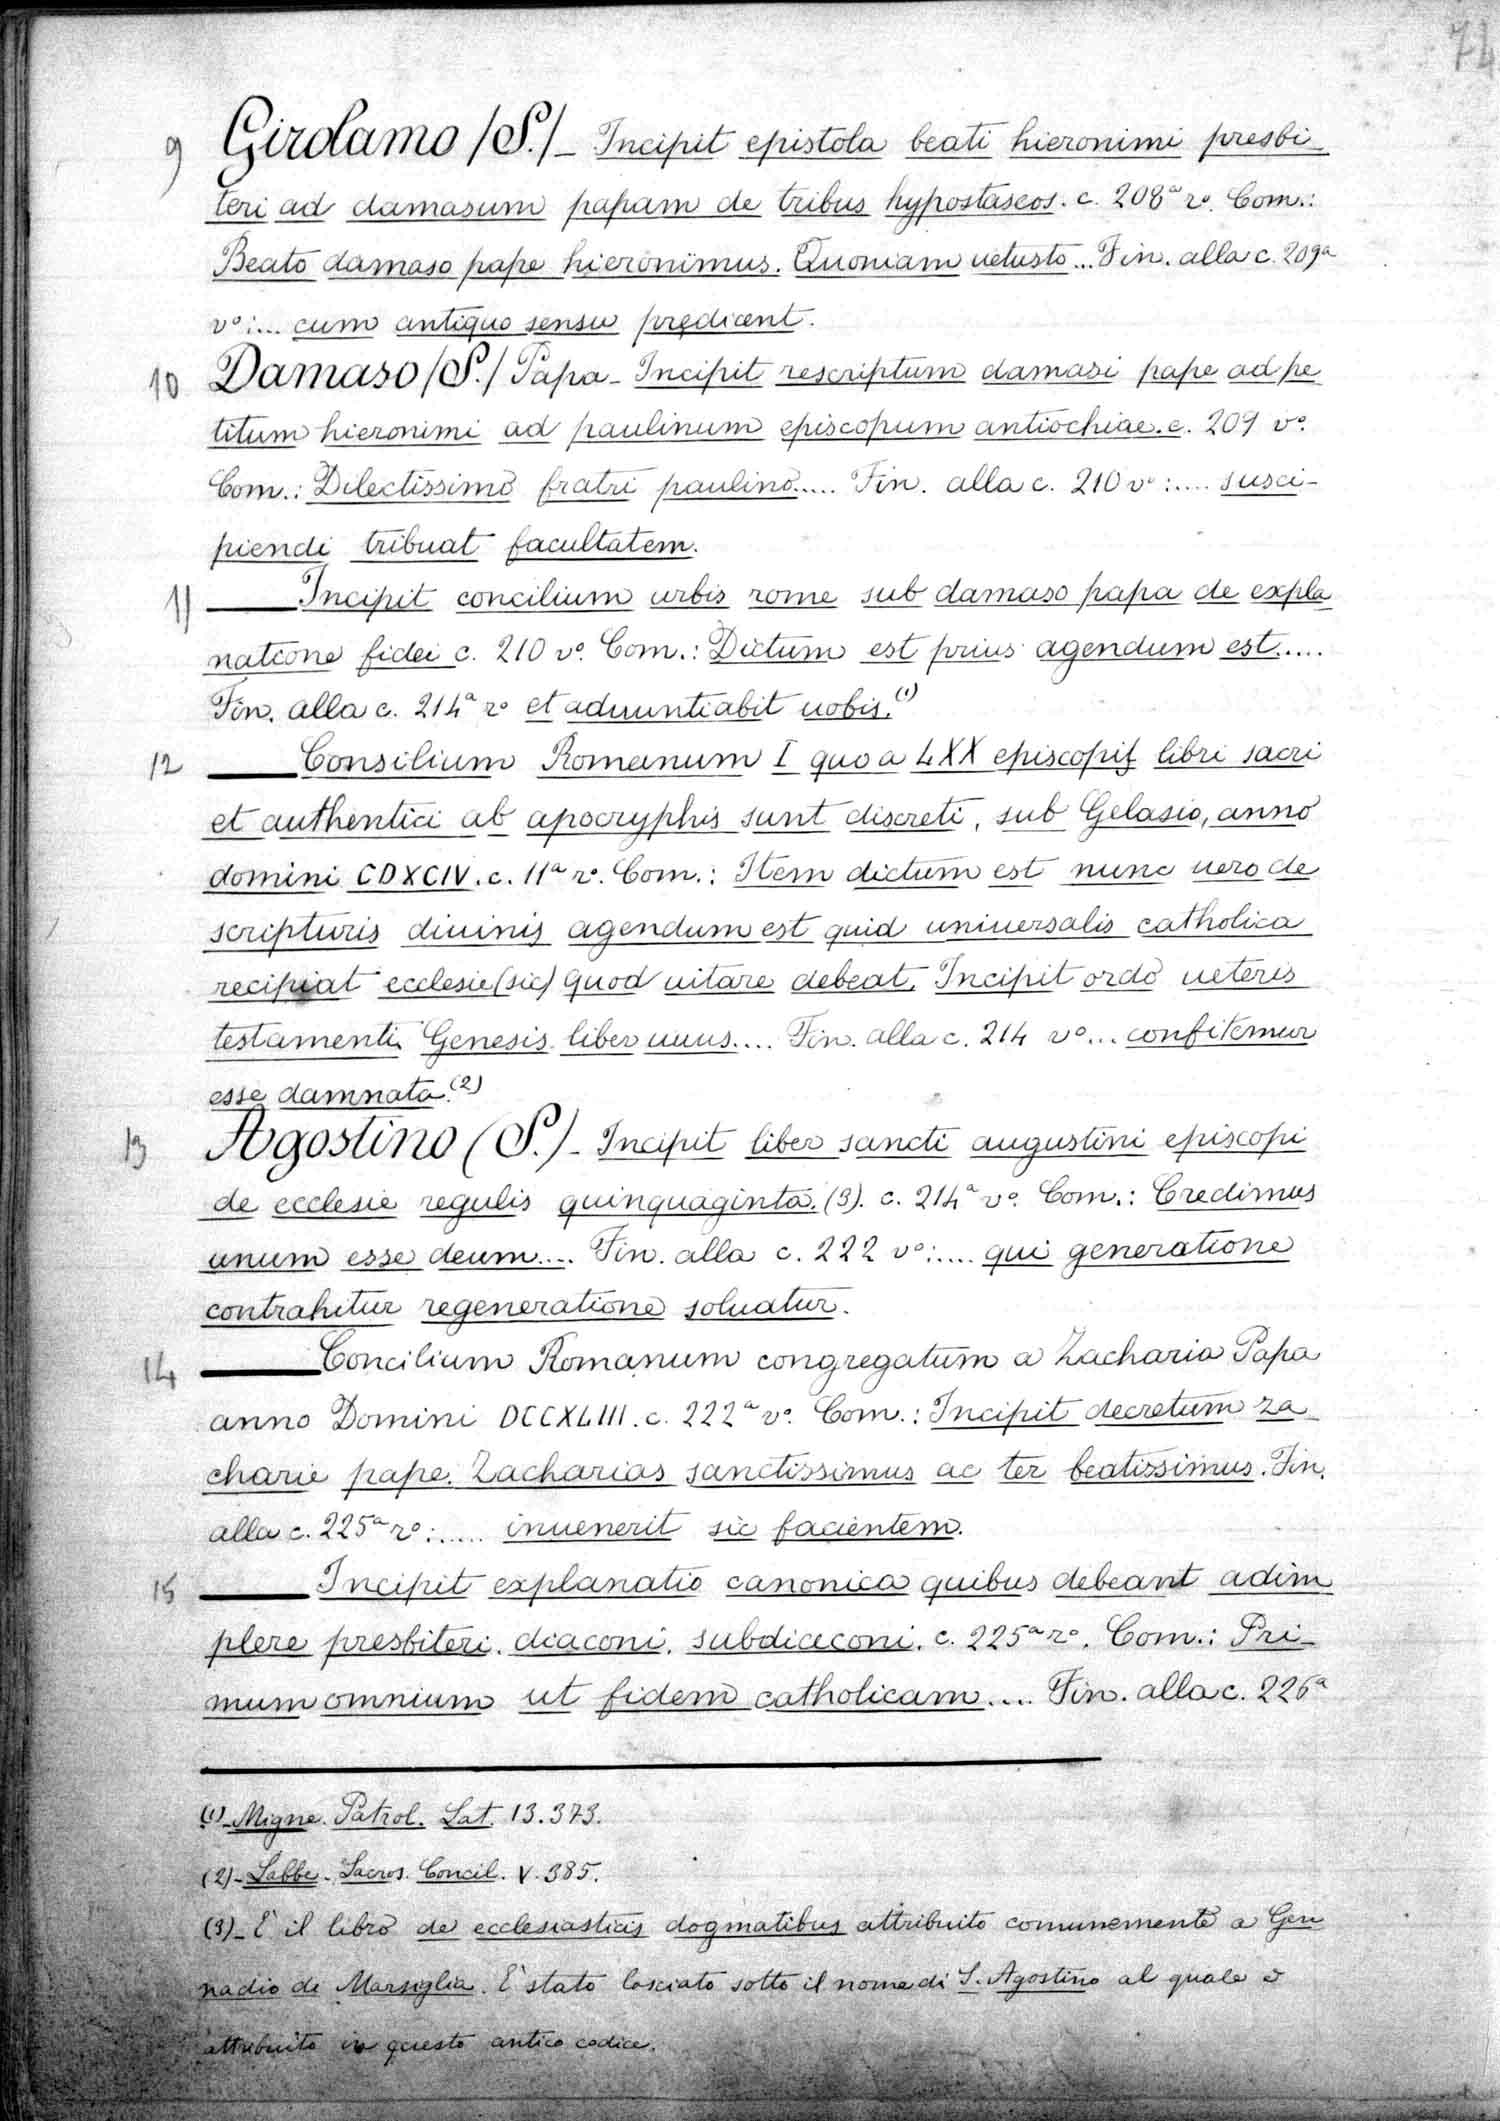 74
9 Girolamo (S.) - Incipit epistola beati hieronimi presbi-
teri ad damasum papam de tribus hypostaseos. c. 208ª rº. Com.:
Beato damaso pape hieronimus. Quoniam uetusto... Fin. alla c. 209ª
vº:... cum antiquo sensu prędicent.
10 Damaso (S.) Papa - Incipit rescriptum damasi pape ad pe
titum hieronimi ad paulinum episcopum antiochiae. c. 209 vº.
Com.: Dilectissimo fratri paulino..... Fin. alla c. 210 vº:.... susci-
piendi tribuat facultatem.
11 ——— Incipit concilium urbis rome sub damaso papa de expla
natione fidei c. 210 vº. Com.: Dictum est prius agendum est.....
Fin. alla c. 214ª rº et adnuntiabit uobis.(1)
12 ——— Consilium Romanum I quo a LXX episcopis libri sacri
et authentici ab apocryphis sunt discreti, sub Gelasio, anno
domini CDXCIV. c. 11ª rº. Com.: Item dictum est nunc uero de
scripturis diuinis agendum est quid uniuersalis catholica
recipiat ecclesie (sic) quod uitare debeat. Incipit ordo ueteris
testamenti. Genesis liber unus.... Fin. alla c. 214 vº... confitemur
esse damnata.(2)
13 Agostino (S.) - Incipit liber sancti augustini episcopi
de ecclesie regulis quinquaginta. (3). c. 214ª vº. Com.: Credimus
unum esse deum.... Fin. alla c. 222 vº:.... qui generatione
contrahitur regeneratione soluatur.
14 ——— Concilium Romanum congregatum a Zacharia Papa
anno Domini DCCXLIII. c. 222ª vº. Com.: Incipit decretum za
charie pape. Zacharias sanctissimus ac ter beatissimus. Fin.
alla c. 225ª rº:..... inuenerit sic facientem.
15 ——— Incipit explanatio canonica quibus debeant adim
plere presbiteri. diaconi. subdiaconi. c. 225ª rº. Com.: Pri-
mum omnium ut fidem catholicam.... Fin. alla c. 226ª
(1)- Migne. Patrol. Lat. 13. 373.
(2)- Labbe - Sacros. Concil. V. 385.
(3)- E' il libro de ecclesiasticis dogmatibus attribuito comunemente a Gen
nadio di Marsiglia. E' stato lasciato sotto il nome di S. Agostino al quale è
attribuito in questo antico codice.